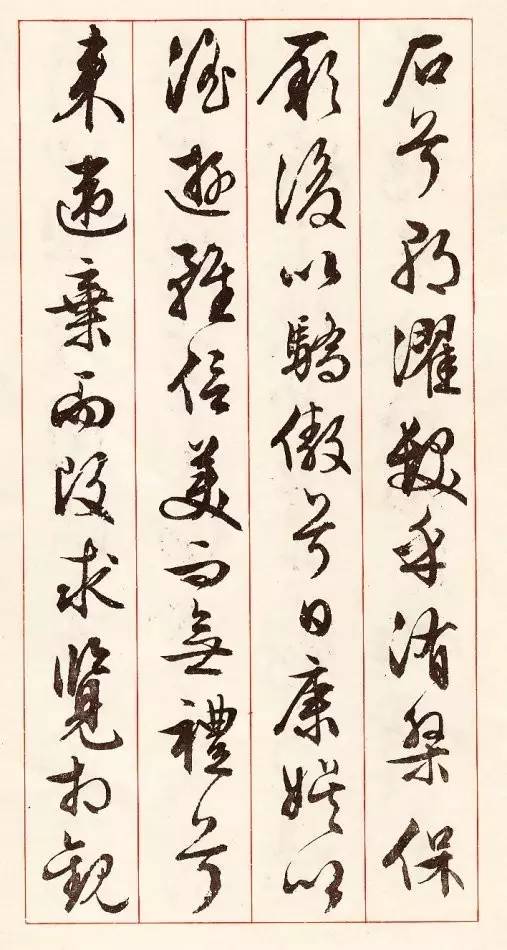 石兮朝濯髮乎洧槃保
厥後以驕傲兮日康娛以
淫遊雖信美而無禮兮
来違棄而改求覽相觀